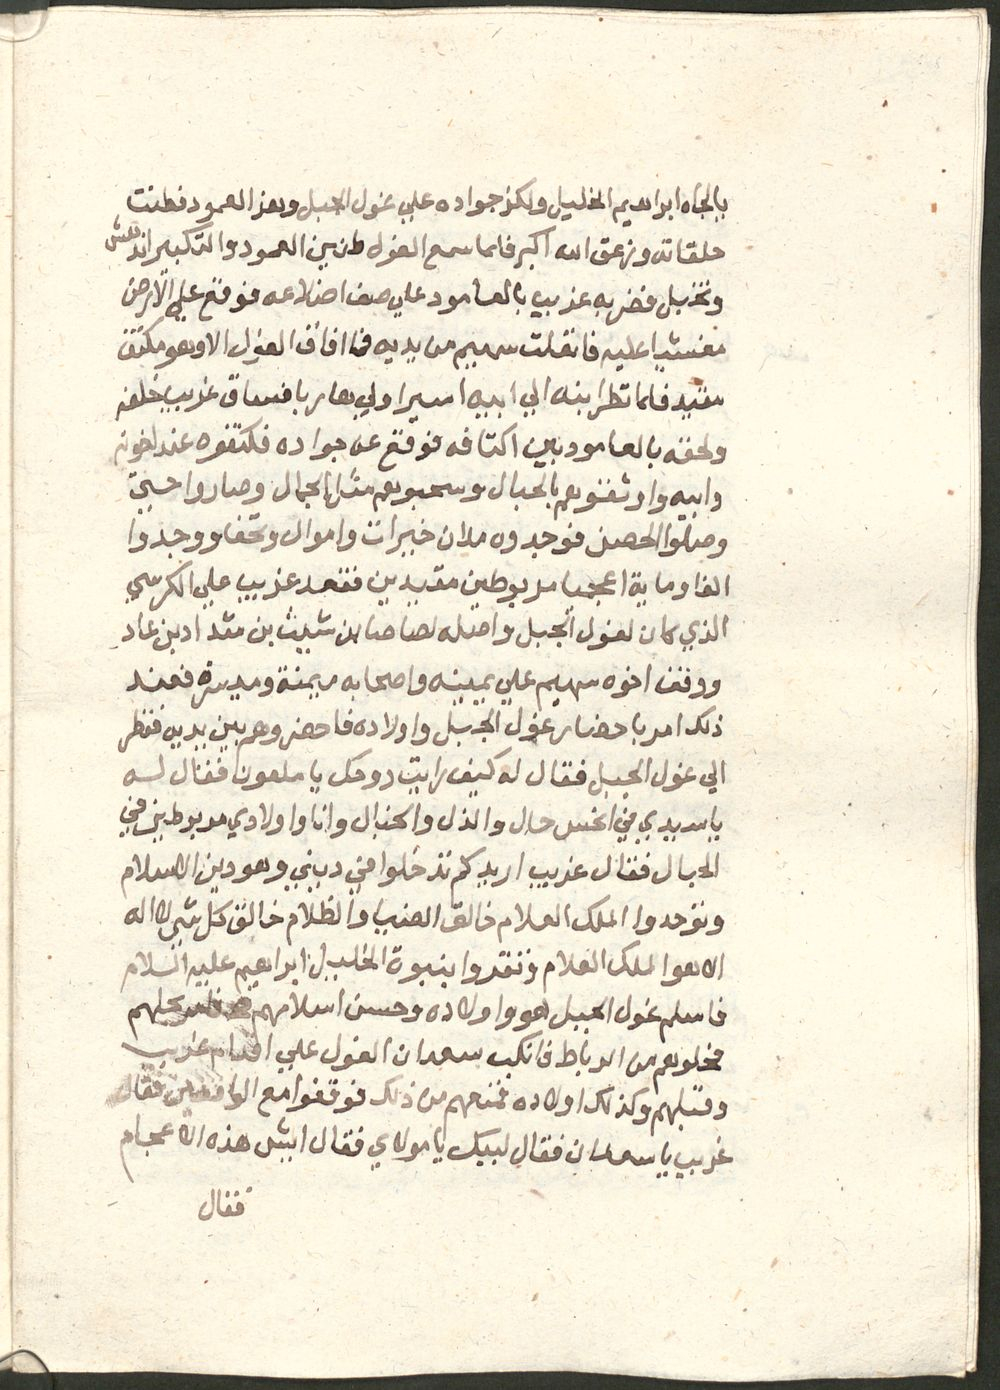 بالجاه ابراهيم الخليل ولكز جواده علي غول الجبل وهز العمود فطنت
حلقاته وزعق الله اكبر فلما سمع الغول طنين العمود والتكبير اندهش
وتخبل فضربه غريب بالعامود علي صف اضلاعه فوقع علي الارض
مغشيا عليه فانفلت سهيم من يديه فما افاق الغول الا وهو مكتف
مقيد فلما نظر ابنه الي ابيه اسيرا ولي هاربا فساق غريب خلفه
ولحقه بالعامود بين اكتافه فوقع عن جواده فكتفوه عند اخوته
وابيه واوثقوهم بالحبال وسحبوهم مثل الجمال وصاروا حتي
وصلوا الحصن فوجدوه ملان خيرات واموال وتحفا ووجدوا
الفا وماية اعجميا مربوطين مقيدين فقعد غريب علي الكرسي
الذي كان لغول الجبل واصله لصاصا بن شيث بن شداد بن عاد
ووقف اخوه سهيم علي يمينه واصحابه ميمنة وميسرة فعند
ذلك امر باحضار غول الجبل واولاده فاحضروهم بين يديه فنظر
الي غول الجبل فقال له كيف رايت روحك يا ملعون فقال له
يا سيدي في انحس حال والذل والخبال وانا واولادي مربوطين في
الحبال فقال غريب اريدكم تدخلوا في ديني وهو دين الاسلام
وتوحدوا الملك العلام خالق الضيا والظلام خالق كل شي لا اله
الا هو الملك العلام وتقروا بنبوة الخليل ابراهيم عليه السلام
فاسلم غول الجبل هو واولاده وحسن اسلامهم فامر بحلهم
فحلوهم من الرباط فانكب سعدان الغول علي اقدام غريب
وقبلهم وكذلك اولاده فمنعهم من ذلك فوقفوا مع الواقفين فقال
غريب يا سعدان فقال لبيك يا مولاي فقال ايش هذه الاعجام
فقال